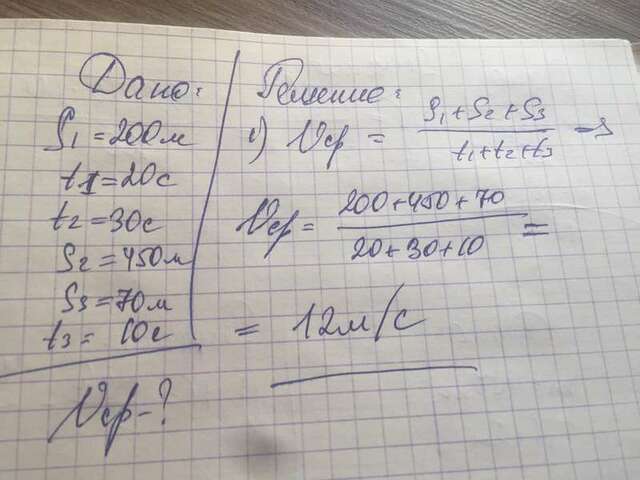 Дано:
S₁ = 200м
t1 = 20с
t₂ = 30с
S₂ = 450м
S₃ = 70м
t₃ = 10с
Vср - ?
Решение:
1) Vср = (S₁ + S₂ + S₃)/(t₁ + t₂ + t₃) →
Vср = (200 + 450 + 70)/(20 + 30 + 10) =
= 12м/с